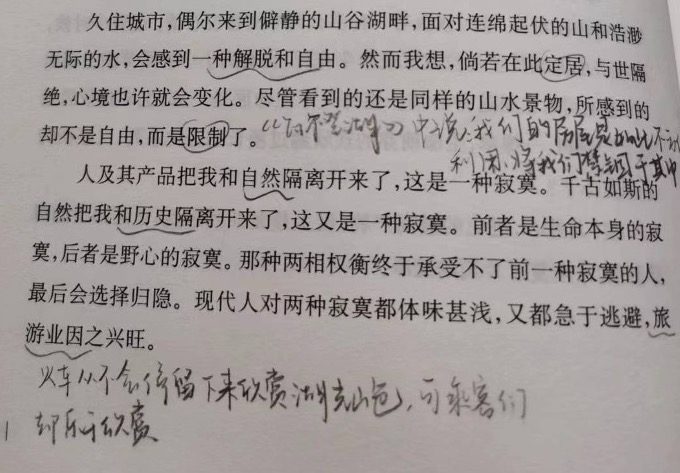 久住城市，偶尔来到僻静的山谷湖畔，面对连绵起伏的山和浩渺
无际的水，会感到一种解脱和自由。然而我想，倘若在此定居，与世隔
绝，心境也许就会变化。尽管看到的还是同样的山水景物，所感到的
却不是自由，而是限制了。
《瓦尔登湖》中说：我们的房屋是如此不
利用，将我们禁囚于其中
人及其产品把我和自然隔离开来了，这是一种寂寞。千古如斯的
自然把我和历史隔离开来了，这又是一种寂寞。前者是生命本身的寂
寞，后者是野心的寂寞。那种两相权衡终于承受不了前一种寂寞的人，
最后会选择归隐。现代人对两种寂寞都体味甚浅，又都急于逃避，旅
游业因之兴旺。
火车从不会停留下来欣赏湖光山色，可乘客们
却乐于欣赏